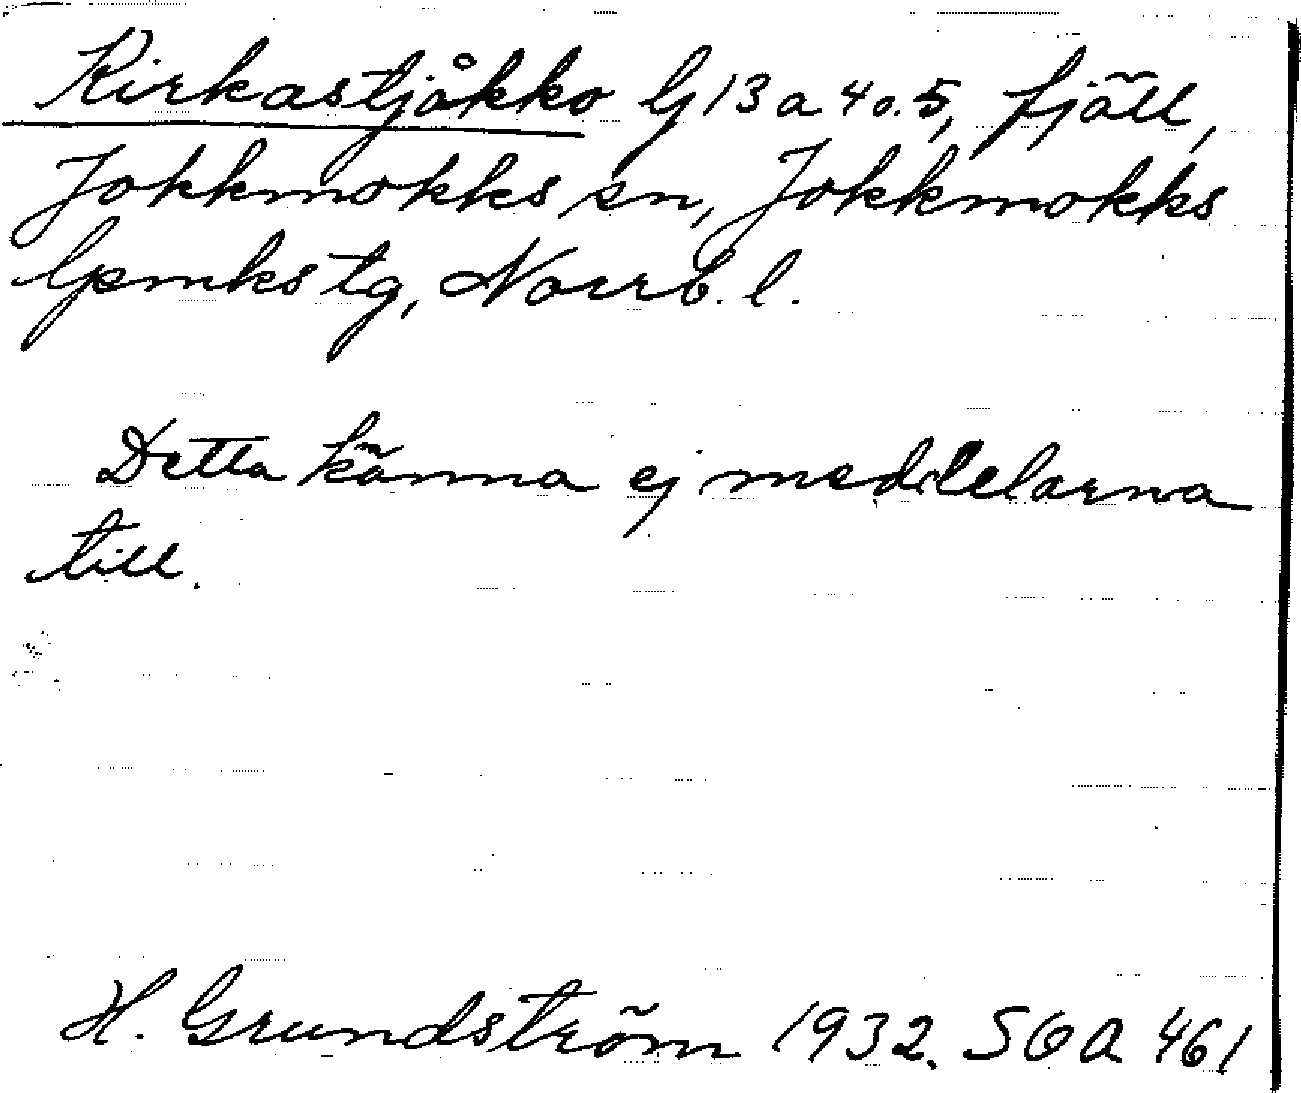 Kirkastjåkko G 13 a 4 o. 5, fjäll,
Jokkmokks sn, Jokkmokks
lpmks tg, Norrb. l.
Detta känna ej meddelarna
till.
H. Grundström 1932. SOA 461